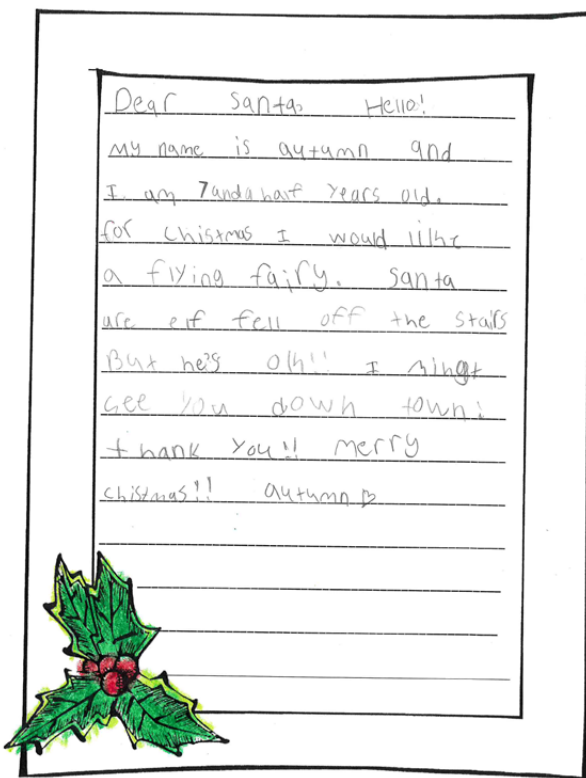 Dear Santa, Hello!
My name is autumn and
I am 7 and a half years old.
for chistmas I would like
a flying fairy. Santa
are elf fell off the stairs
But he's oh!! I mingt
see you down town!
thank you!! merry
chistmas!! autumn ♡